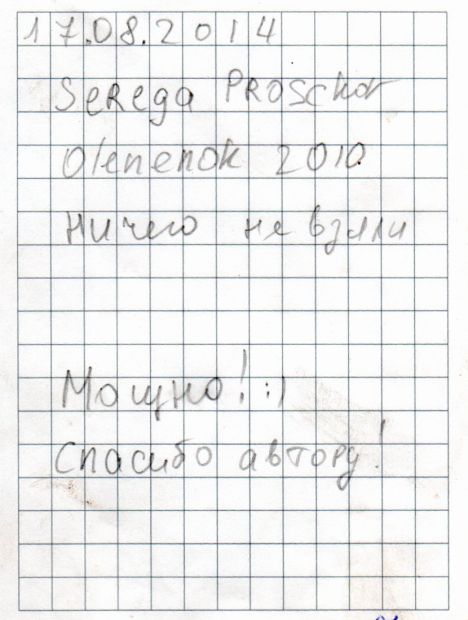 17.08.2014
Serega Proschor
Olenenok 2010
Ничего не взяли
Мощно! :)
Спасибо автору!